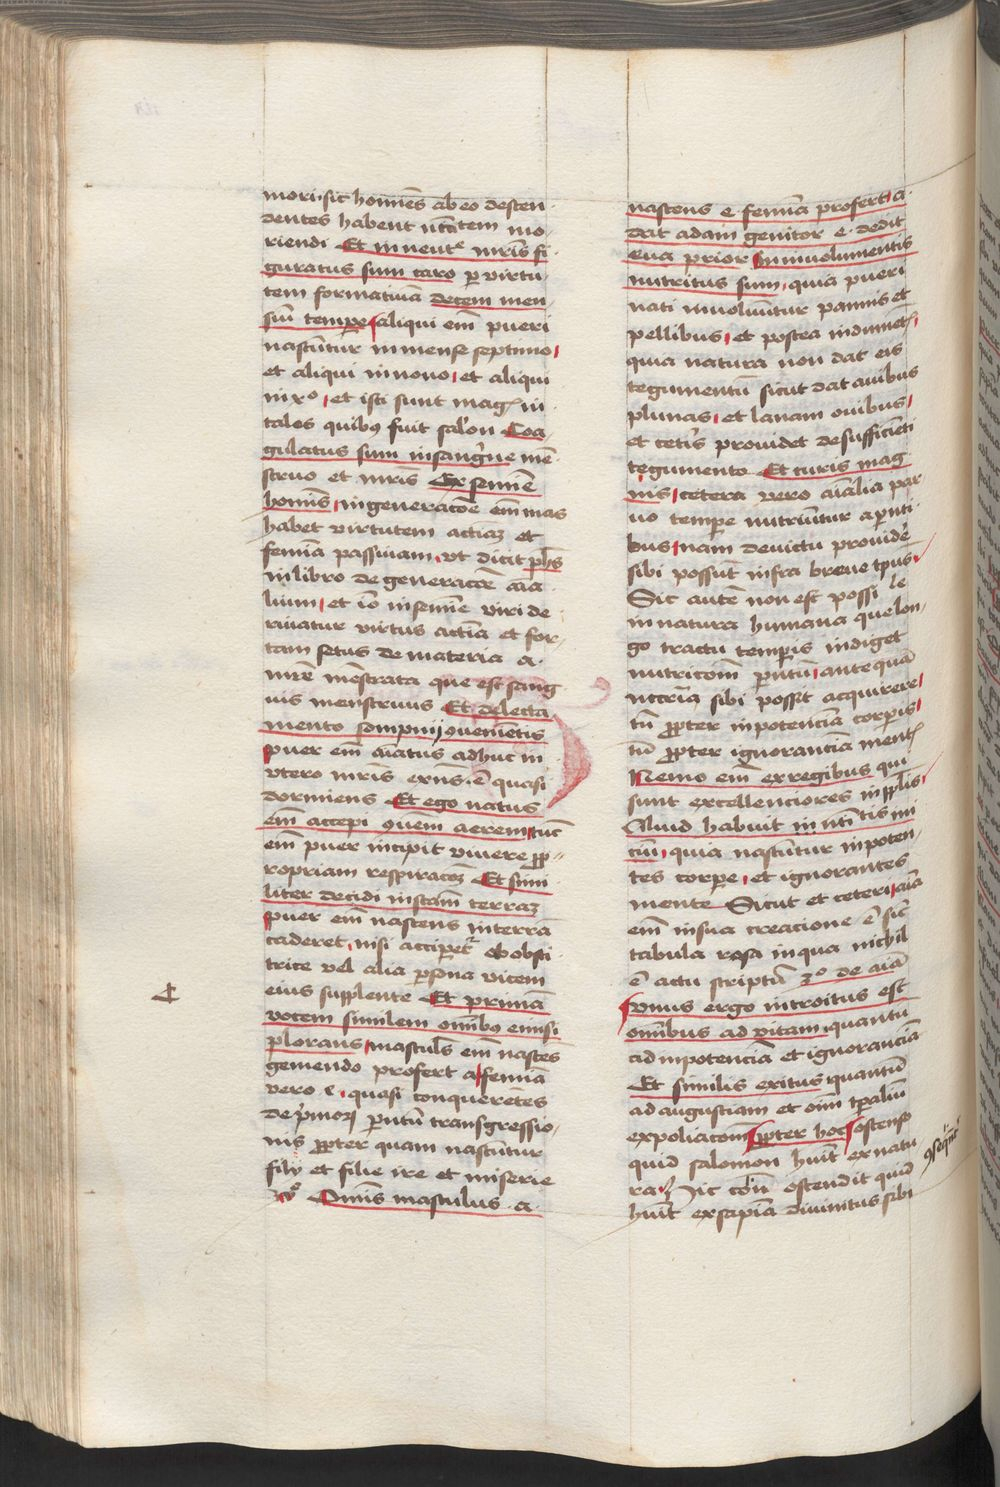 mori sic homines ab eo descen
dentes habent nccitatem mo
riendi Et in ventre mris fi
guratus sum caro per virtu
tem formativam decem men
sium tempore aliqui enim pueri
nascuntur in mense septimo
et aliqui in nono et aliqui
in xo et isti sunt magis in
tales quibus fuit salon Coa
gulatus sum in sanguine men
struo et mris Ex semine
hominis in generacione enim mas
habet virtutem activam et
femina passivam ut dicit phus
in libro de generacione ani
lium et ideo in semine viri de
rivatur virtus activa et for
fetus de materia a
mre que est sang
uis menstruus Et delecta
mento sompnij convenientis
puer enim animatus adhuc in
utero mris exns e quasi
dormiens Et ego natus
enim accepi communem aerem tunc
enim puer incipit vivere per
propriam respiracionem Et simi
liter decidi in eandem terram
puer enim nascens in terra
caderet nisi acciperetur ab obste
trice vel alia persona vicem
eius supplente Et primam
vocem similem omnibus emisi
plorans masculus enim nascens
gemendo profert a femina
vero e quasi conquerentes
de primorum parentum transgressio
nis propter quam nascuntur
filij et filie ire et miserie
Omnis masculus a
nascens e femina profert a
dat adam genitor e dedit
eua prior In involumentis
nutritus sum quia pueri
nati involvuntur pannis et
pellibus et postea indumentis
quia natura non dat eis
tegumentum sicut dat avibus
plumas et lanam ovibus
et ceteris providet de sufficienti
tegumento Et curis mag
nis cetera vero animalia par
vo tempore nutriuntur a parenti
bus nam de victu providere
sibi possunt infra breve tempus
Sic autem non est possi le
in natura humana que lon
go tractu temporis indiget
nutricione parentum antequam
nccria sibi posset acquirere
tum propter inpotenciam corporis
tum propter ignoranciam mentis
Nemo enim ex regibus qui
sunt excellenciores in populis
Aliud habuit in nativitatis ini
cium quia nascuntur inpoten
tes corpore et ignorantes
mente Sicut et ceteri anima
enim in sua creacione est sicut
tabula rasa in qua nichil
est actu scriptum 3o de anima
Unus ergo introitus est
omnibus ad vitam quantum
ad inpotenciam et ignoranciam
Et similis exitus quantum
ad angustiam et omnium temporalium
expoliacionem Propter hoc ostenso
quid salomon habuit ex natu
ra Hic consequenter ostendit quid
habuit ex sapiencia divinitus sibi